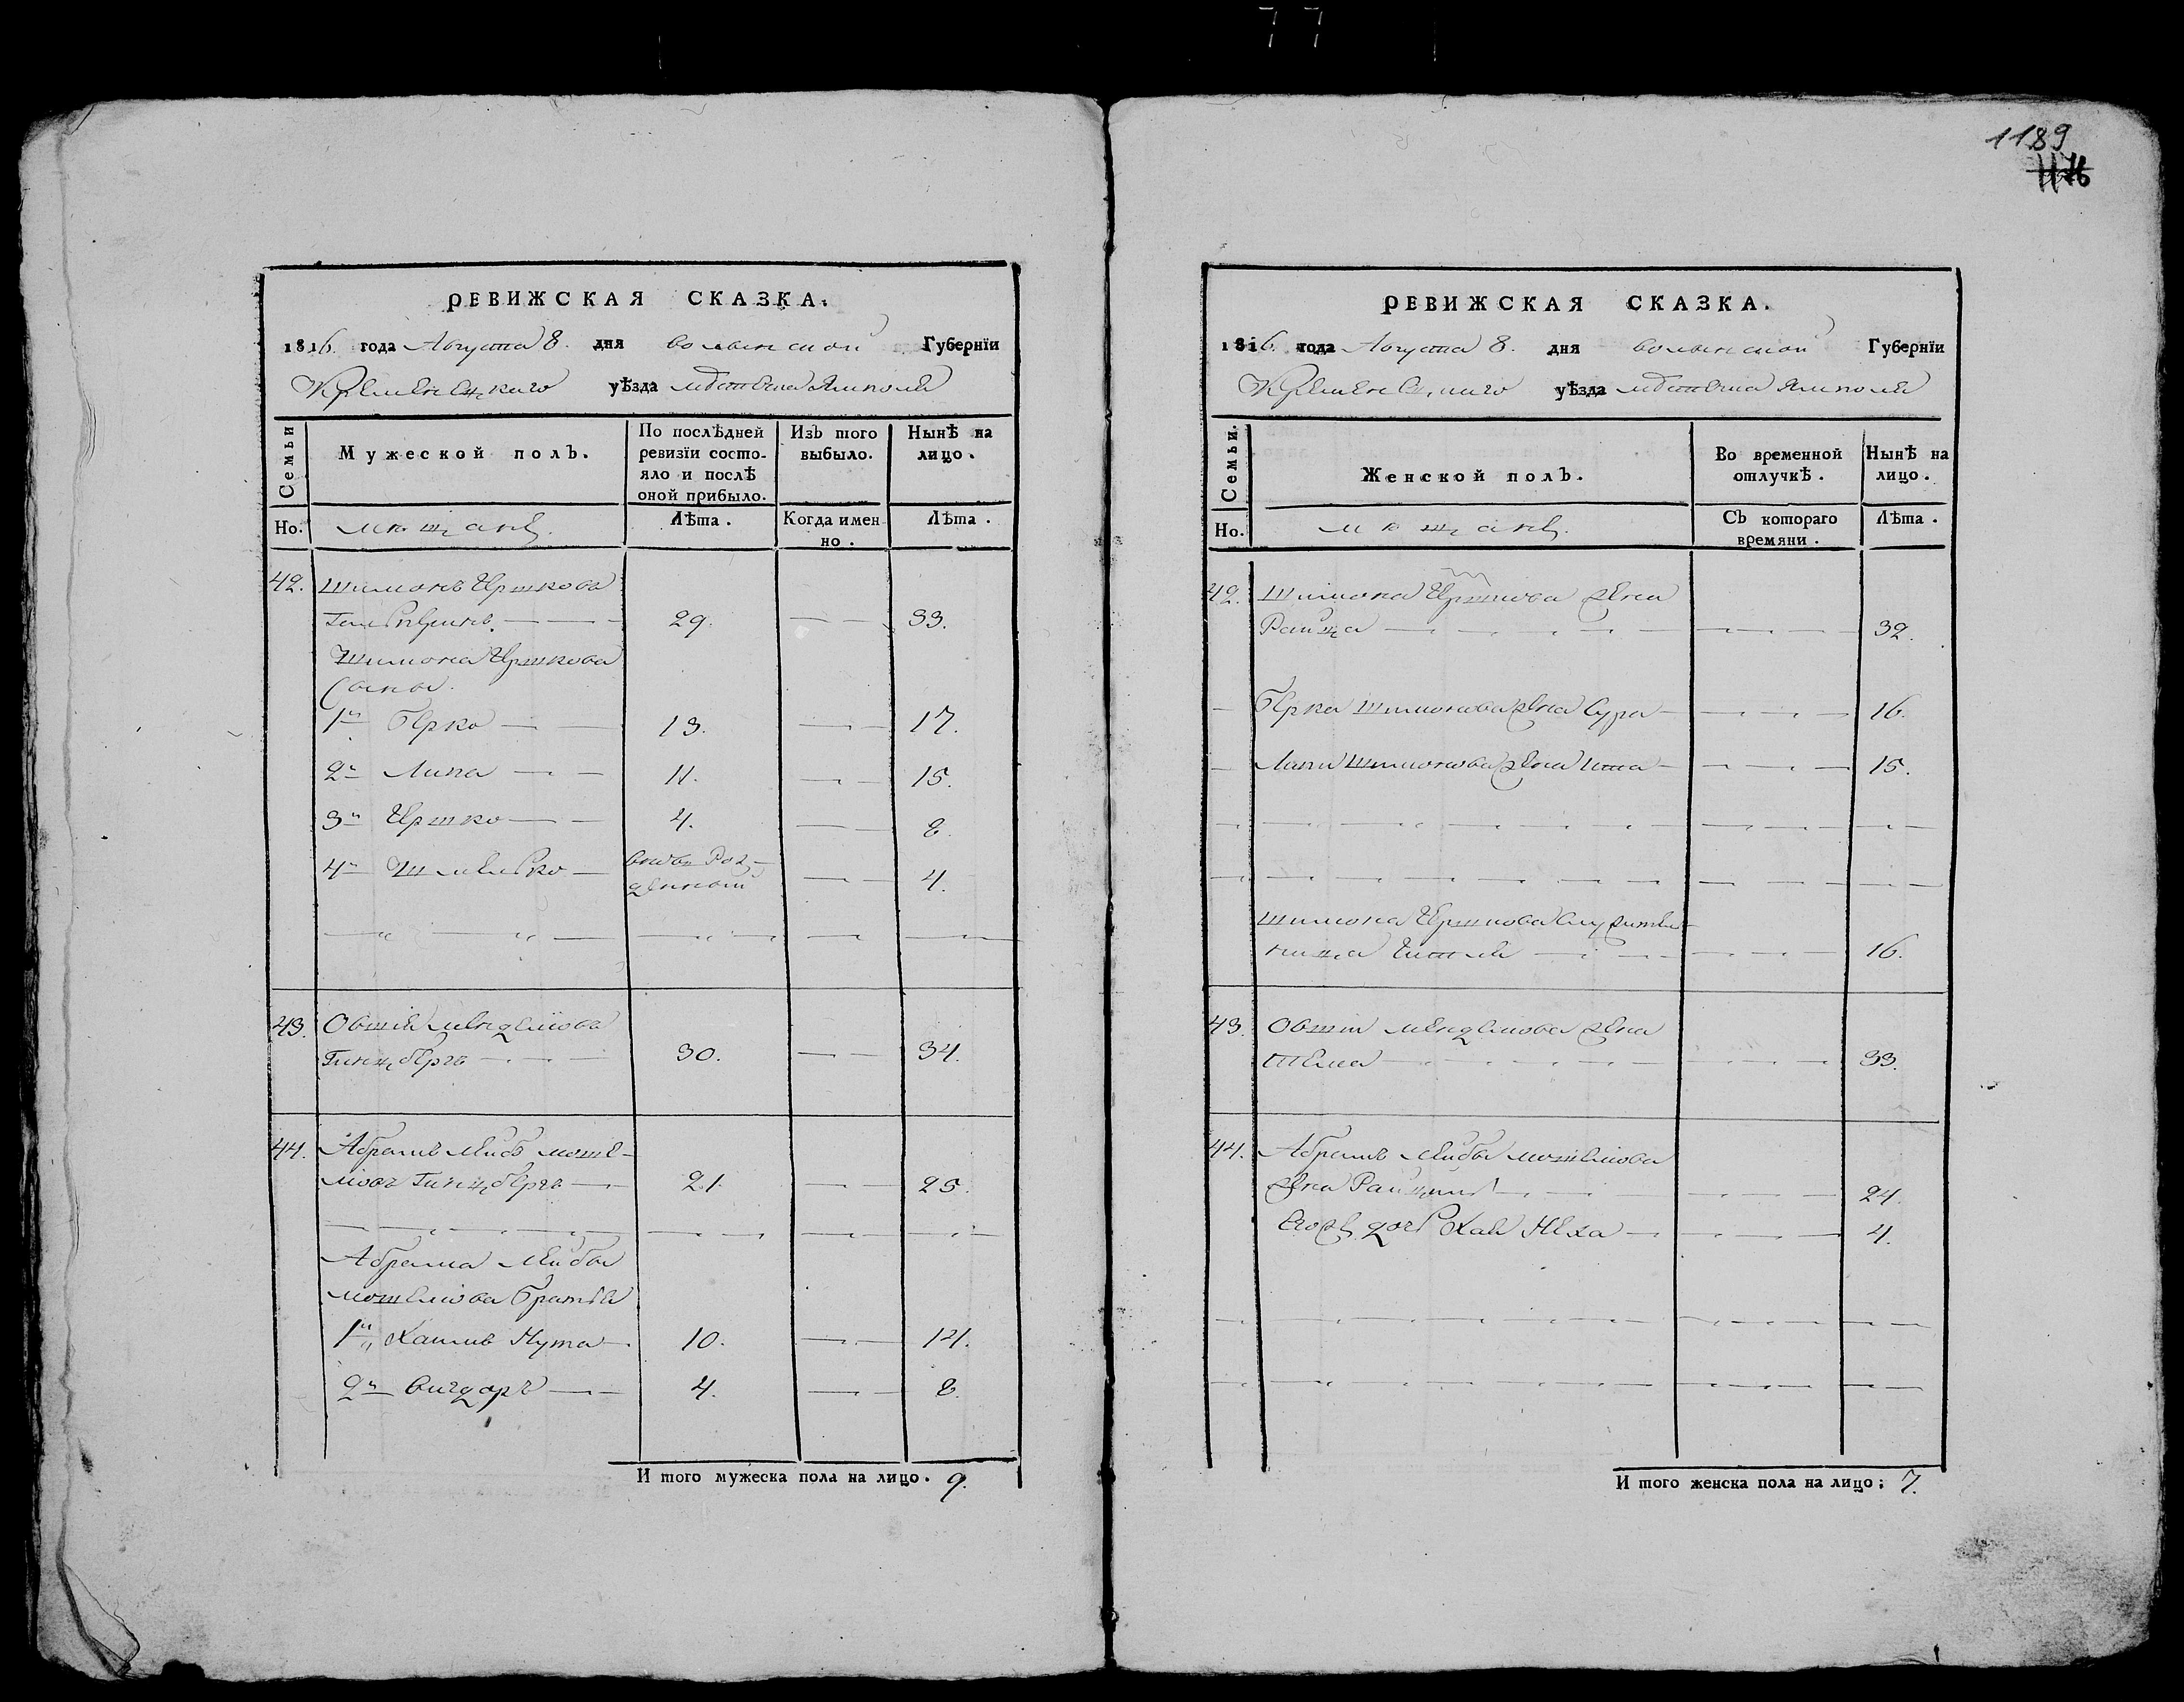 77
1189
1176
РЕВИЖСКАЯ СКАЗКА.
1816. года Августа 8. дня волынской Губернїи
Кременецкаго уѣзда мѣстечка Ямполя
Семьи
Мужеской полъ.
По послѣдней ревизїи состо-
яло и послѣ
оной прибыло.
Изъ того
выбыло.
Нынѣ на
лицо.
Но.
Лѣта.
Когда имен
но.
Лѣта.
42. Шимонъ Гершковъ
29. 33.
Шимона Гершкова
Сыны
1й Берко 13. 17.
2й Липа 11. 15.
3й Гершко 4. 8.
4й 4.
43.
Гинцбергъ 30. 34.
44. Абрамъ Лейбъ моше-
Гинцбергъ 21 25.
Абрама Лейбы
братья
1й Хаимъ Нута 10. 14.
2й Вигдоръ 4. 8.
И того мужеска пола на лицо. 9.
РЕВИЖСКАЯ СКАЗКА.
1816. года Августа 8. дня волынской Губернїи
Кременецкаго уѣзда мѣстечка Ямполя
Семьи.
Женской полъ.
Во временной
отлучкѣ.
Нынѣ на
лицо.
Но.
Съ котораго
времяни.
Лѣта.
42. Шимона Гершкова жена
Райца 32.
Берка Шимонова жена Сура 16.
Шимонова жена 15.
Шимона Гершкова служитель-
ница 16.
43. жена
33.
44. Абрамъ Лейбы
жена 24.
Егожъ дочь Хая Неха 4.
И того женска пола на лицо; 7.